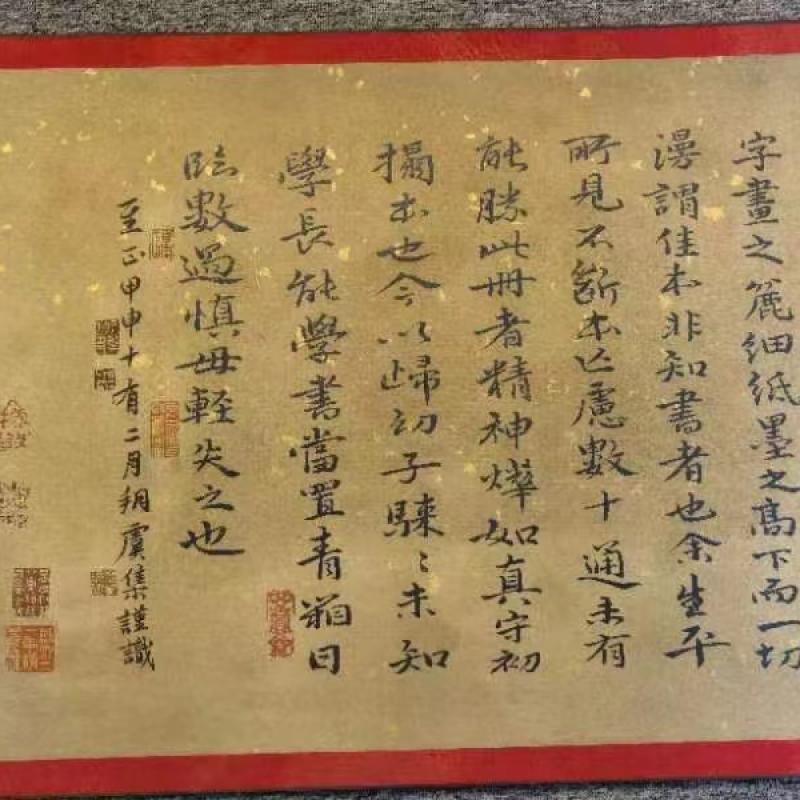 字畫之麄細紙墨之高下而一切
漫謂佳本非知書者也余生平
所見不斷本亡慮數十通未有
能勝此冊者精神燁如真守初
搨本也今以歸初子騋〻未知
學長能學書當置青箱日
臨數過慎毋輕失之也
至正甲申十有二月朔虞集謹識